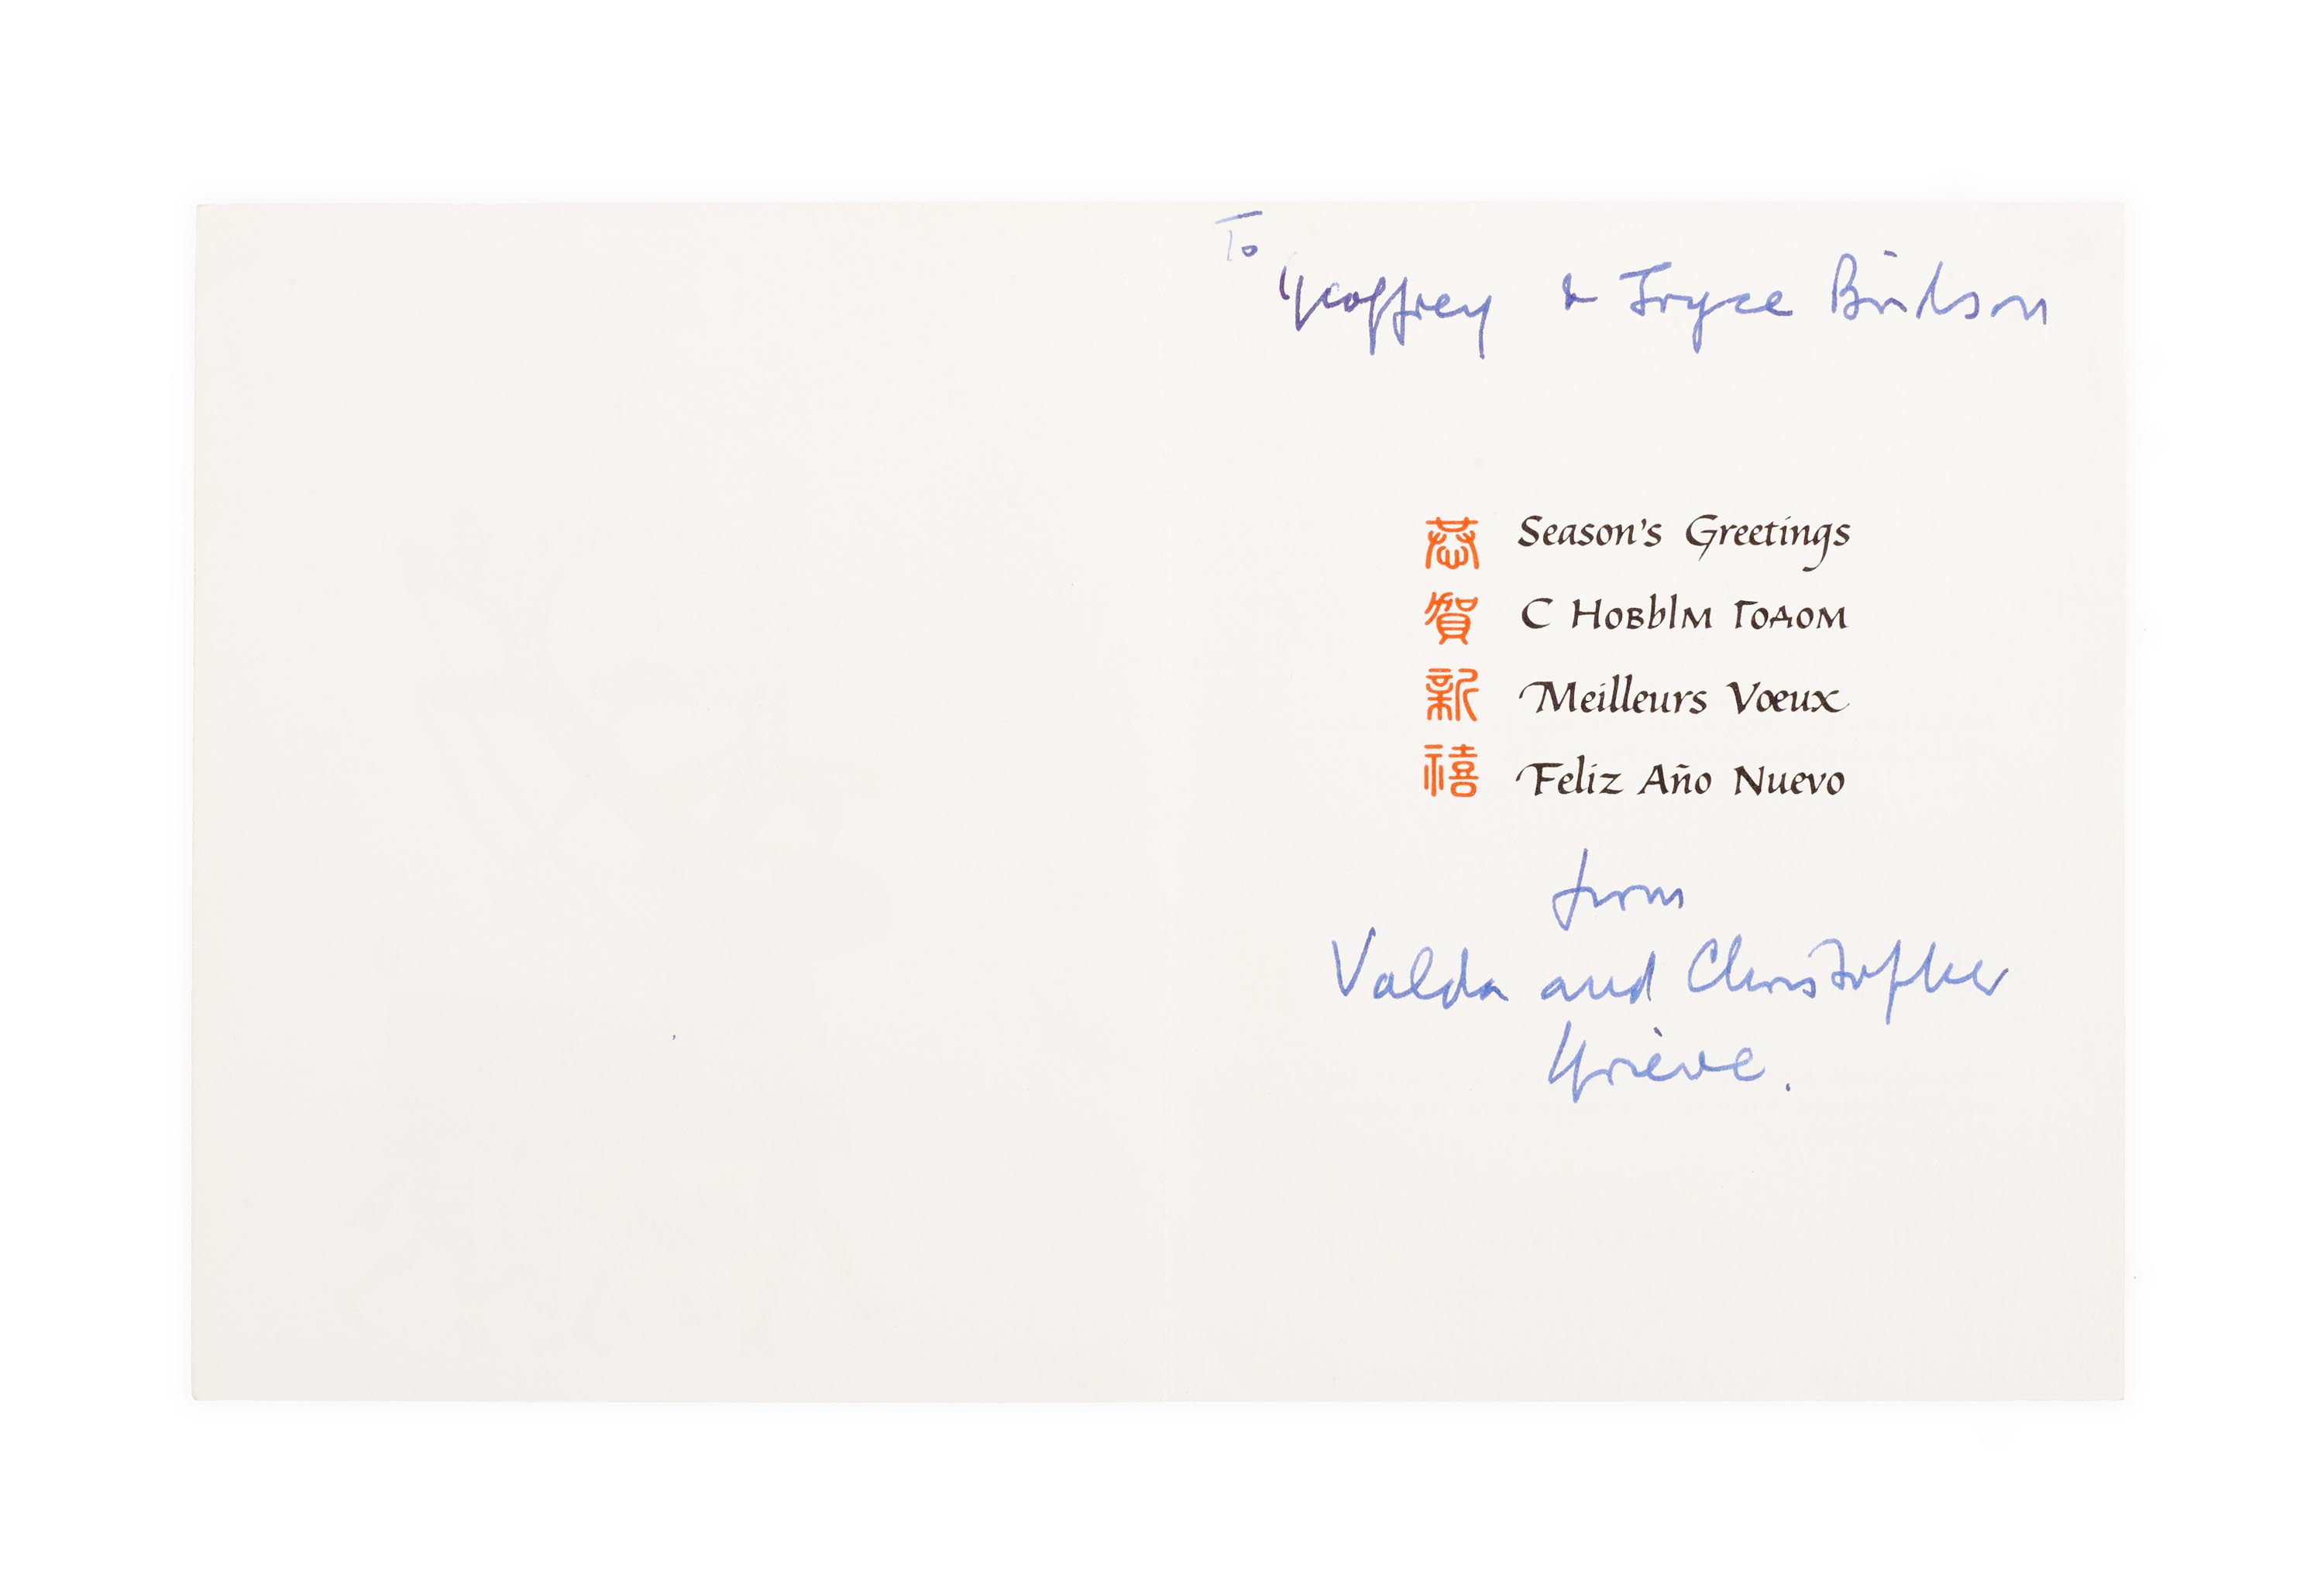 To
Geoffrey & Joyce Bridson
恭賀新禧
Season's Greetings
С Новым Годом
Meilleurs Vœux
Feliz Año Nuevo
from
Valda and Christopher
Grieve.